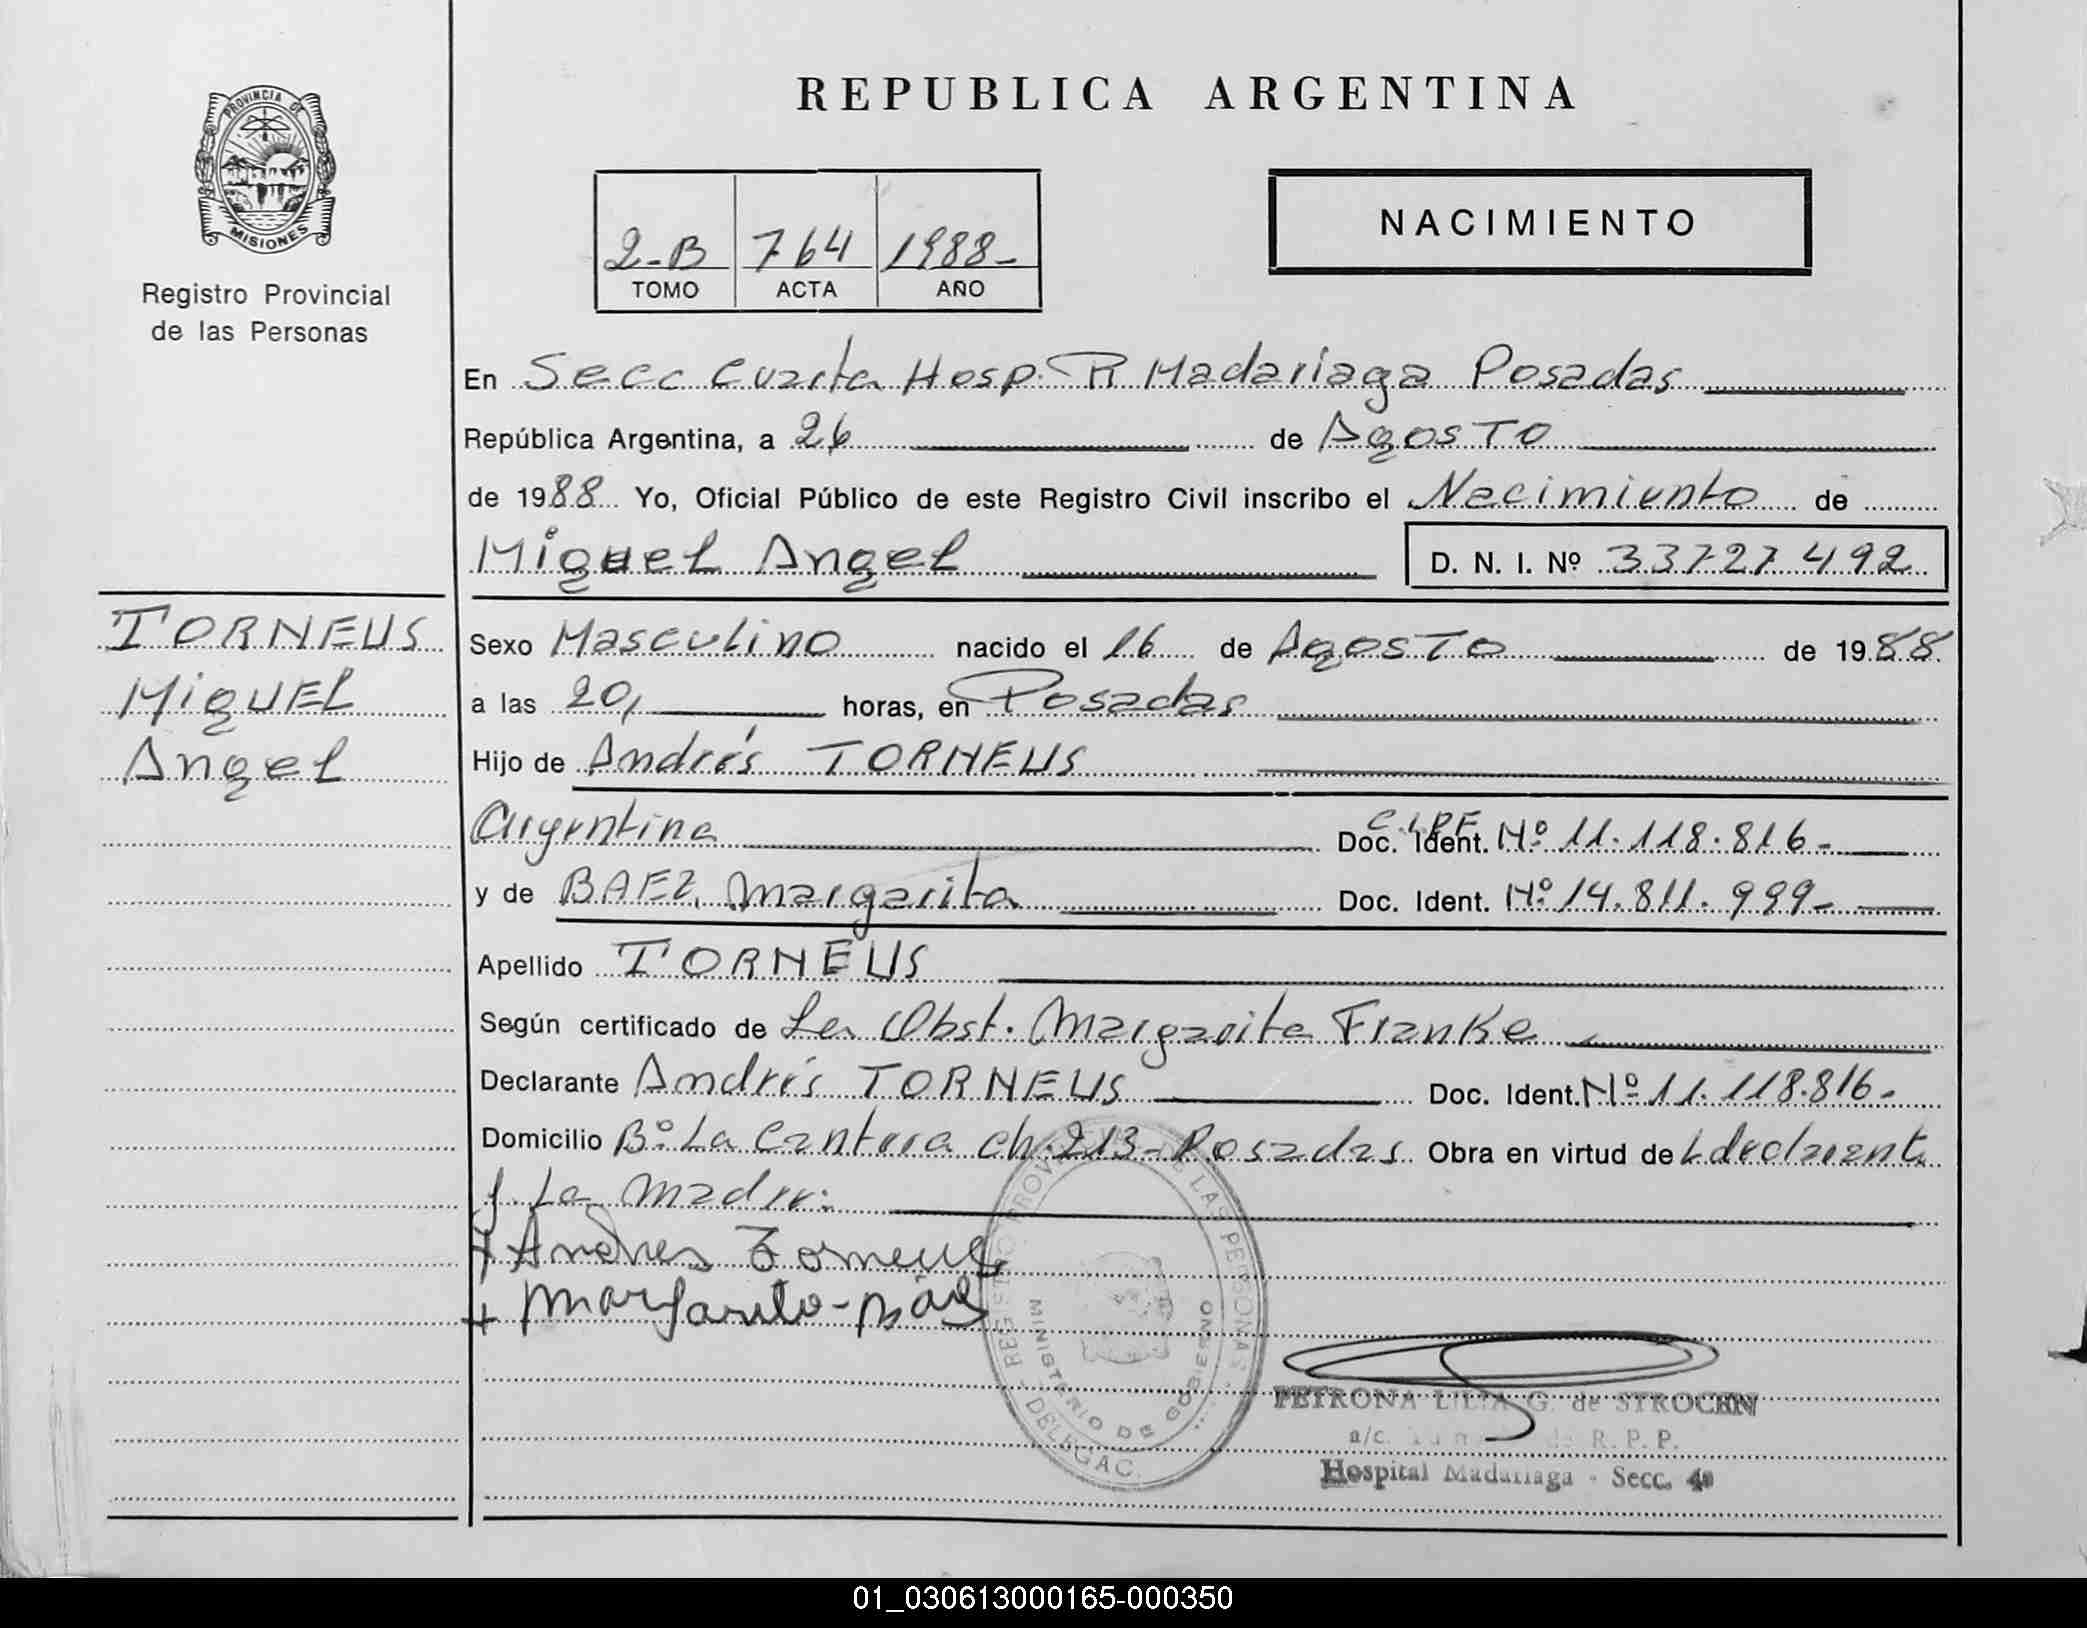 PROVINCIA DE
MISIONES
Registro Provincial
de las Personas
REPUBLICA ARGENTINA
2-B 764 1988-
TOMO ACTA AÑO
NACIMIENTO
En Secc Cuarta Hosp. R Madariaga Posadas
República Argentina, a 26 de Agosto
de 1988 Yo, Oficial Público de este Registro Civil inscribo el Nacimiento de
Miguel Angel D. N. I. Nº 33727492
TORNEUS
Miguel
Angel
Sexo Masculino nacido el 16 de Agosto de 1988
a las 20, horas, en Posadas
Hijo de Andrés TORNEUS
Argentina Doc. Ident. Nº 11.118.816-
y de BAEZ, Margarita Doc. Ident. Nº 14.811.999-
Apellido TORNEUS
Según certificado de La Obst. Margarita Franke
Declarante Andrés TORNEUS Doc. Ident. Nº 11.118.816-
Domicilio Bº La Cantera ch. 213- Posadas Obra en virtud de
y La Madre:
Andres Torneus
Margarito-
REGISTRO PROVINCIAL DE LAS PERSONAS
MINISTERIO DE GOBIERNO
DELEGAC.
PETRONA LILIA G. de STROCEN
a/c. de R. P. P.
Hospital Madariaga - Secc. 4ª
01_030613000165-000350